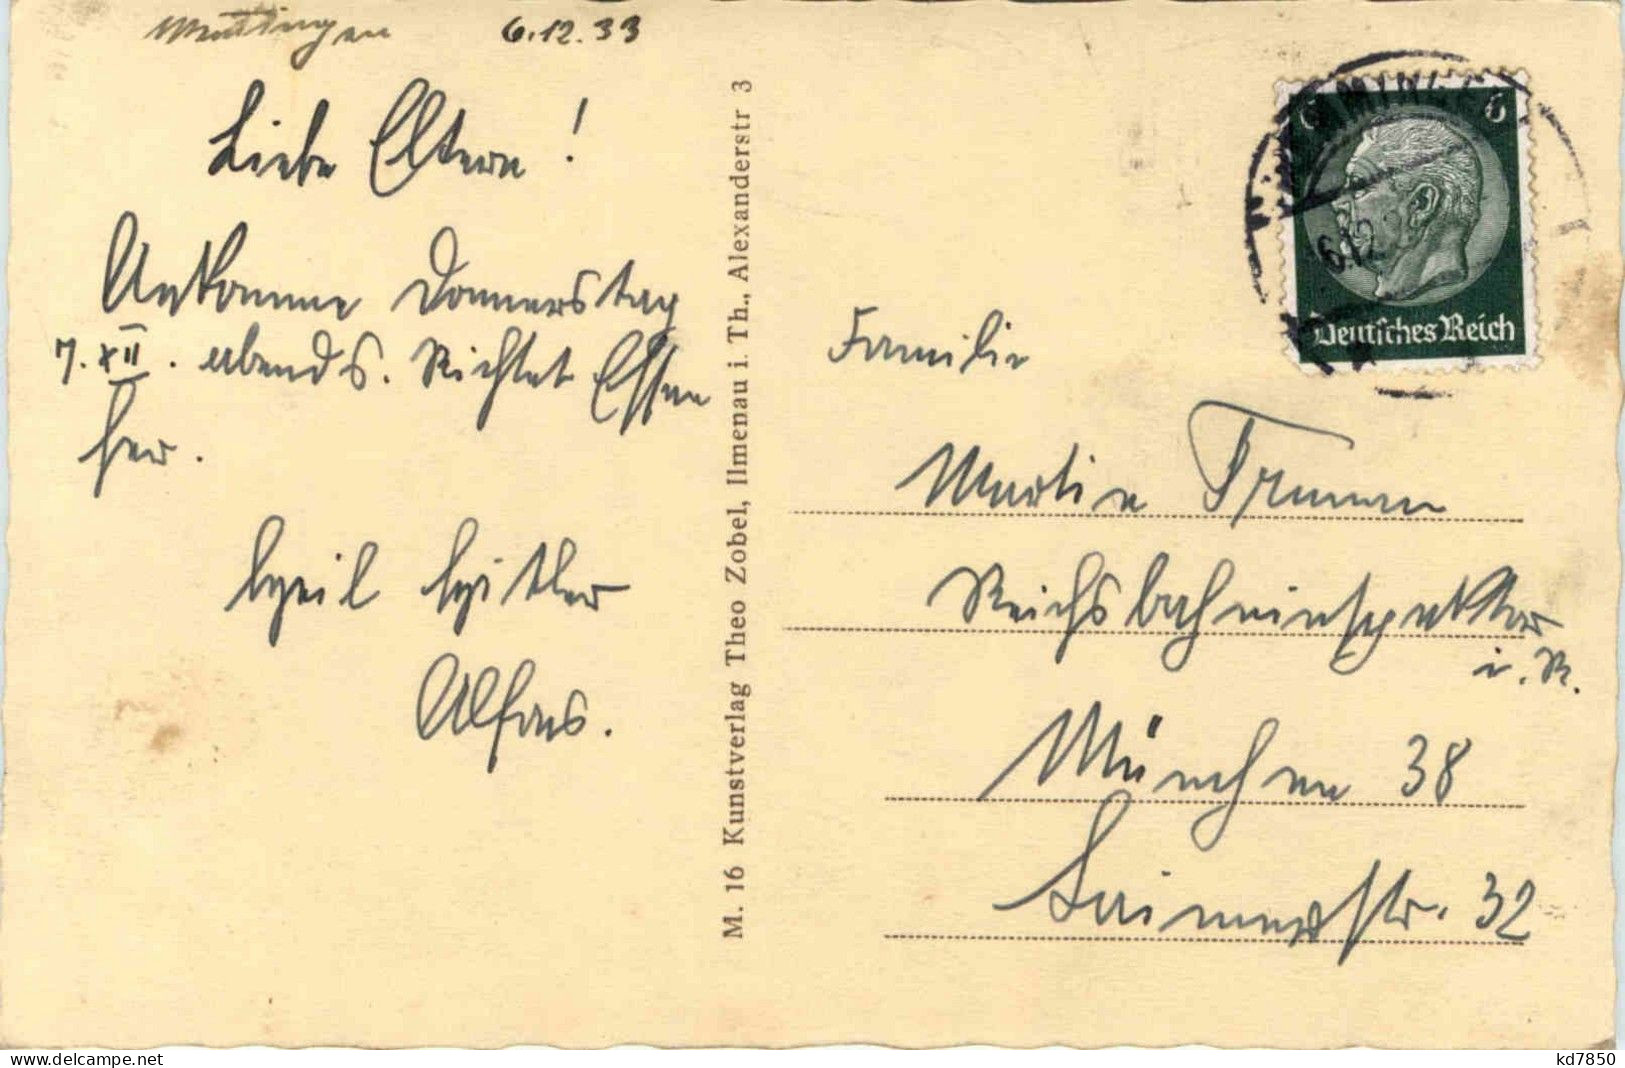 6.12.33
Liebe Eltern!
Ankomme Donnerstag
7. XII. abends. Richtet Essen
her.
Heil Hitler
Alfons.
M. 16 Kunstverlag Theo Zobel, Ilmenau i. Th., Alexanderstr 3
6
6.12
Deutsches Reich
Familie
Martin
Reichsbahninspektor
i. R.
München 38
32
www.delcampe.net
kd7850